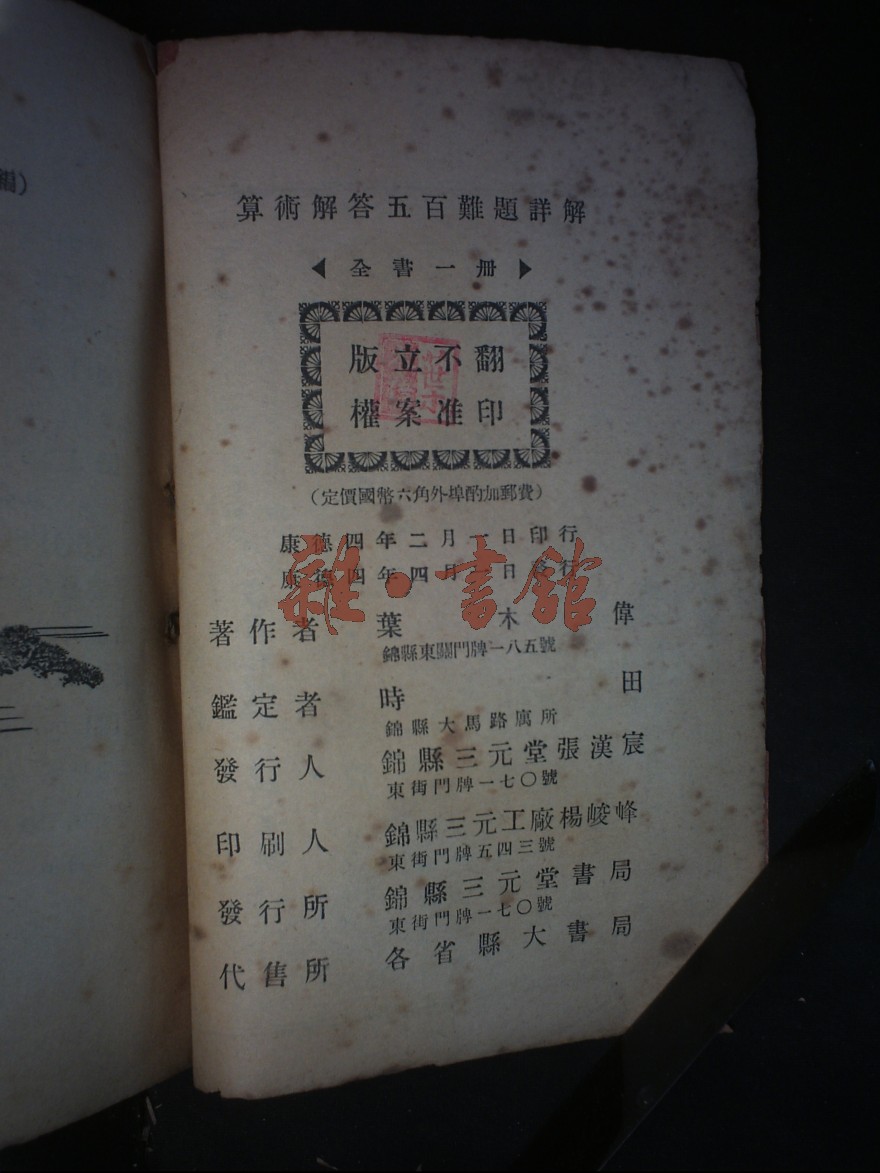 編）
算術解答五百難題詳解
全書一冊
版立不翻
權案准印
（定價國幣六角外埠酌加郵費）
康德四年二月一日印行
康德四年四月一日發行
雜·書館
著作者 葉木偉
錦縣東關門牌一八五號
鑑定者 時田
錦縣大馬路寓所
發行人 錦縣三元堂張漢宸
東街門牌一七〇號
印刷人 錦縣三元工廠楊峻峰
東街門牌五四三號
發行所 錦縣三元堂書局
東街門牌一七〇號
代售所 各省縣大書局